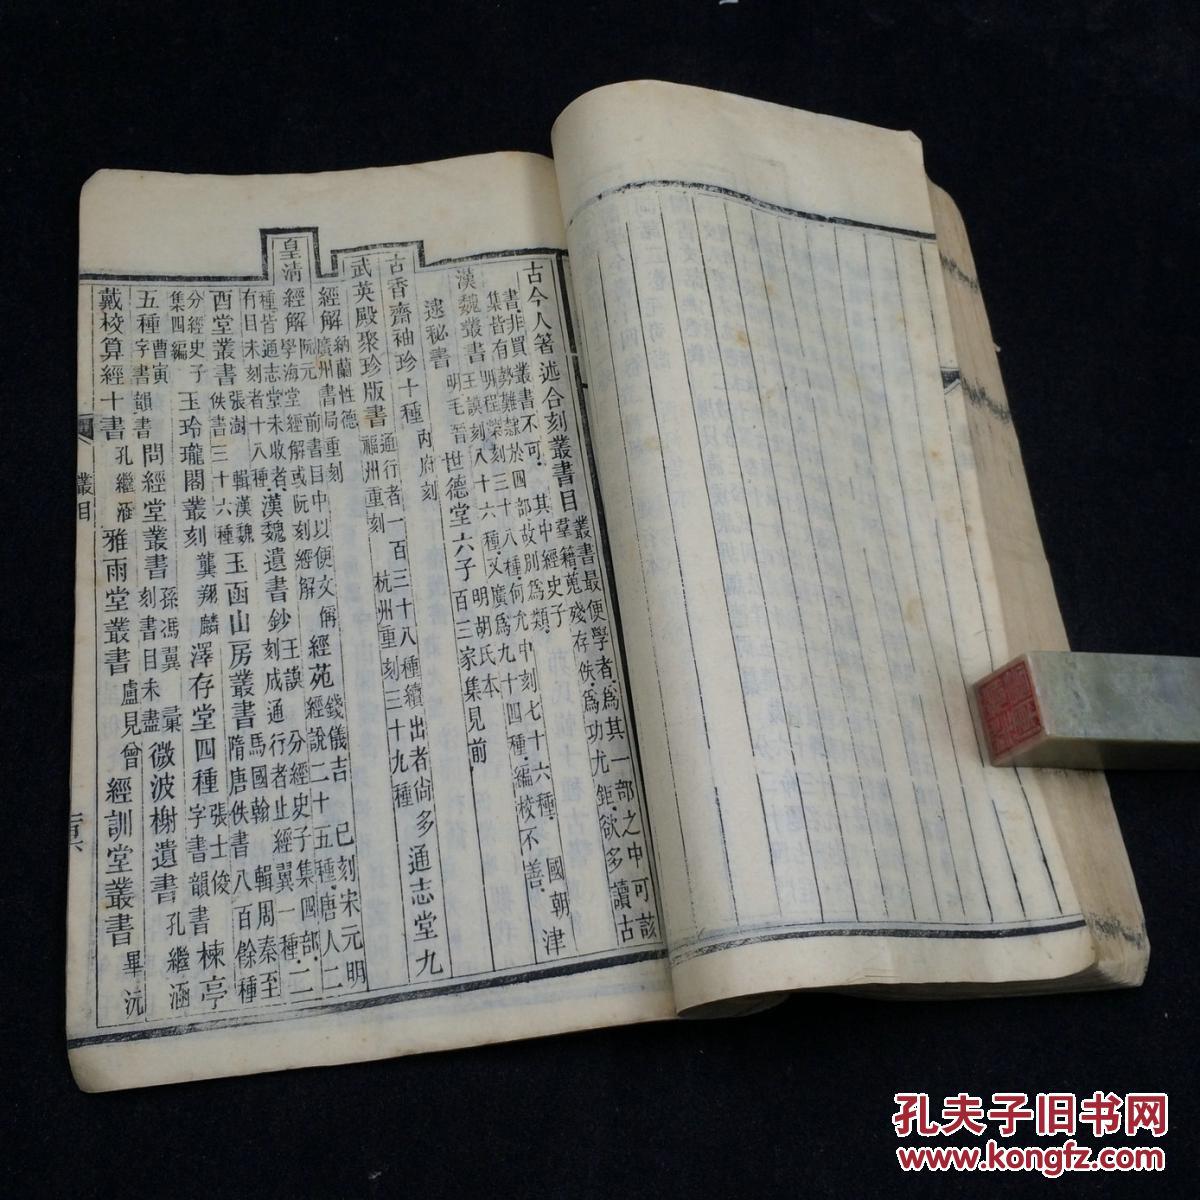 古今人箸述合刻叢書目 叢書最便學者爲其一部之中可該
羣籍蒐殘存佚爲功尤鉅欲多讀古
書非買叢書不可其中經史子
集皆有勢難隸於四部故別爲類
漢魏叢書 明程榮刻三十八種何允中刻七十六種 國朝
王謨刻八十六種又廣爲九十四種編校不善 津
逮秘書 明毛晉 世德堂六子 百三家集見前
明胡氏本
古香齋袖珍十種 內府刻
武英殿聚珍版書 通行者一百三十八種續出者尙多 通志堂九
福州重刻 杭州重刻三十九種
經解 納蘭性德
廣州書局重刻
皇清經解 阮元 前書目中以便文稱
學海堂經解或阮刻經解 經苑 錢儀吉 已刻宋元明
經說二十五種唐人二
種皆通志堂未收者
有目未刻者十八種 漢魏遺書鈔 王謨 分經史子集四部
刻成通行者止經翼一種 二
酉堂叢書 張澍 輯漢魏
佚書三十六種 玉函山房叢書 馬國翰 輯周秦至
隋唐佚書八百餘種
分經史子
集四編 玉玲瓏閣叢刻 龔翔麟 澤存堂四種 張士俊
字書韻書 楝亭
五種 曹寅
字書韻書 問經堂叢書 孫馮翼 彙
刻書目未盡 微波榭遺書 孔繼涵
戴校算經十書 孔繼涵 雅雨堂叢書 盧見曾 經訓堂叢書 畢沅
叢目
孔夫子旧书网
www.kongfz.com